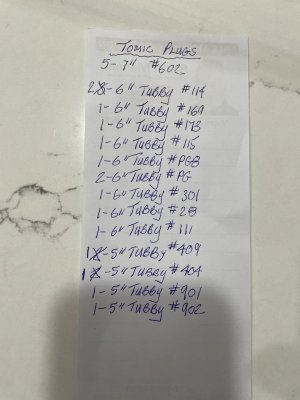 TOMIC PLUGS
5-7" #602
2-6" TUBBY #114
1-6" TUBBY #169
1-6" TUBBY #173
1-6" TUBBY #115
1-6" TUBBY #PGB
2-6" TUBBY #PG
1-6" TUBBY #301
1-6" TUBBY #23
1-6" TUBBY #111
1-5" TUBBY #409
1-5" TUBBY #404
1-5" TUBBY #901
1-5" TUBBY #902